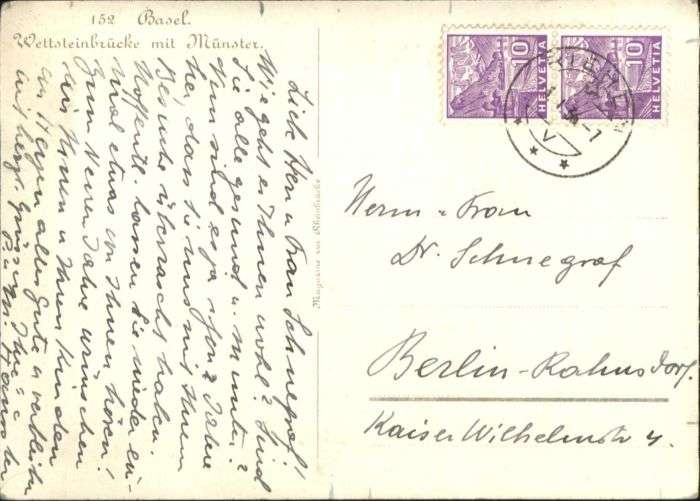 152 Basel.
Wettsteinbrücke mit Münster.
Liebe Herr u Frau Schnegraf!
Wie geht es Ihnen wohl? Sind
Sie alle gesund u. munter?
Nun sind es ja schon 2 Jahre
her, dass Sie uns mit Ihrem
Besuche überrascht haben.
Hoffentl. lassen Sie wieder ein-
mal etwas von Ihnen hören!
Zum Neuen Jahre wünschen
wir Ihnen u Ihren Kindern
von Herzen alles Gute u verbleiben
mit herzl. Grüssen Ihre
Magazine zur Rheinbrücke
10 HELVETIA
10 HELVETIA
Herrn u Frau
Dr. Schnegraf
Berlin-Rahnsdorf.
Kaiser Wilhelmstr 4.